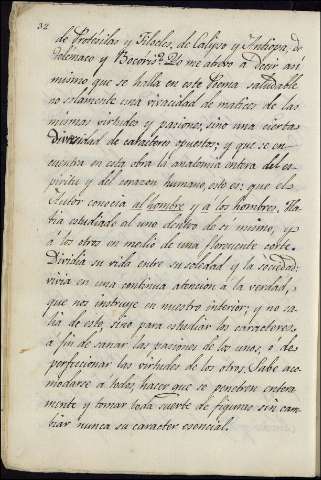 32
de Protesilas y Filocles, de Calipso y Antiopa, de
Telemaco y Bocoris. Yo me atrevo a decir asi
mismo que se halla en este Poema saludable
no solamente una vivacidad de matices de las
mismas virtudes y pasiones, sino una cierta
diversidad de caracteres opuestos; y que se en-
cuentra en esta obra la anatomia entera del es-
piritu y del corazon humano, esto es: que el
Autor conocia al hombre y a los hombres. Ha-
bia estudiado al uno dentro de si mismo, y
á los otros en medio de una floreciente corte.
Dividia su vida entre su soledad y la sociedad;
vivia en una continua atencion a la verdad,
que nos instruye en nuestro interior; y no sa-
lia de esto, sino para estudiar los caracteres,
a fin de sanar las pasiones de los unos, ó de
perfeccionar las virtudes de los otros. Sabe aco-
modarse a todos, hacer que se penetren entera
mente y tomar toda suerte de figuras sin cam
biar nunca su caracter esencial.